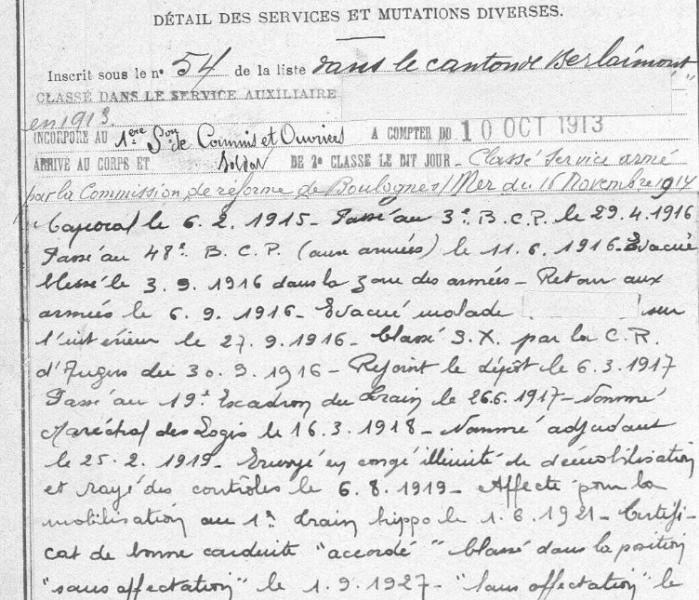 DÉTAIL DES SERVICES ET MUTATIONS DIVERSES.
Inscrit sous le n° 54 de la liste dans le canton de Berlaimont
CLASSÉ DANS LE SERVICE AUXILIAIRE
en 1913.
INCORPORÉ AU 1ère Son de Commis et Ouvriers A COMPTER DU 10 OCT 1913
ARRIVÉ AU CORPS ET Soldat DE 2e CLASSE LE DIT JOUR - Classé Service armé
par la Commission de réforme de Boulogne s/Mer du 16 Novembre 1914
Caporal le 6. 2. 1915 - Passé au 3e B.C.P. le 29.4.1916
Passé au 48e B.C.P. (aux armées) le 11.6.1916 - Evacué
blessé le 3.9.1916 dans la zone des armées - Retour aux
armées le 6.9.1916 - Evacué malade sur
l'intérieur le 27.9.1916 - classé S.X. par la C.R.
d'Angers du 30.9.1916 - Rejoint le dépôt le 6.3.1917
Passé au 19e Escadron du Train le 26.6.1917 - Nommé
Maréchal des Logis le 16.3.1918 - Nommé adjudant
le 25.2.1919 - Envoyé en congé illimité de démobilisation
et rayé des contrôles le 6.8.1919 - Affecté pour la
mobilisation au 1er Train hippo le 1.6.1921 - Certifi-
cat de bonne conduite "accordé" classé dans la position
"sans affectation" le 1.9.1927 - "Sans affectation" le